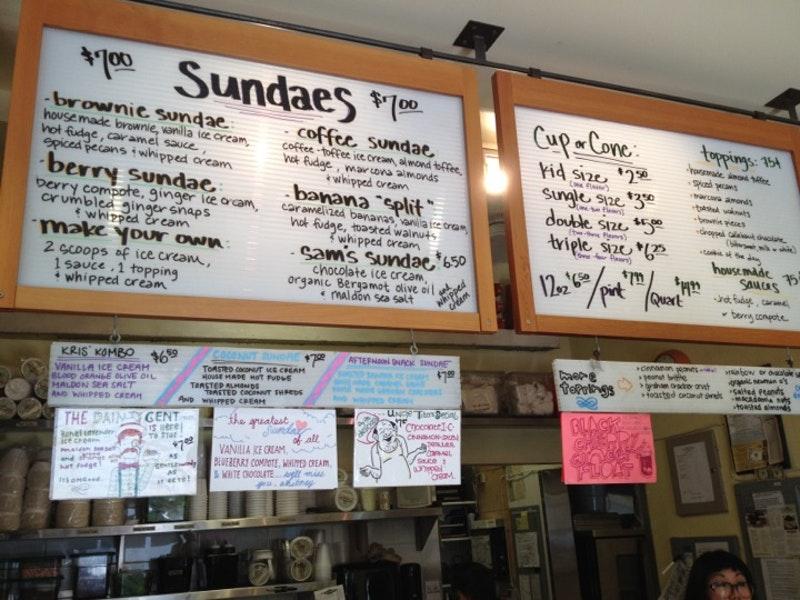 $7.00
Sundaes $7.00
- brownie sundae:
housemade brownie, vanilla ice cream,
hot fudge, caramel sauce,
spiced pecans & whipped cream
- berry sundae:
berry compote, ginger ice cream,
crumbled ginger snaps
& whipped cream
- make your own:
2 scoops of ice cream,
1 sauce, 1 topping
& whipped cream
- coffee sundae
coffee-toffee ice cream, almond toffee,
hot fudge, marcona almonds
& whipped cream
- banana "split"
caramelized bananas, vanilla ice cream,
hot fudge, toasted walnuts
& whipped cream
- Sam's sundae $6.50
chocolate ice cream,
organic Bergamot olive oil
& maldon sea salt
and whipped cream
Cup or Cone:
kid size $2.50
(one flavor)
single size $3.50
(one-two flavors)
double size $5.00
(two-three flavors)
triple size $6.25
(one-four flavors)
12oz $6.50 / pint $7.99 / Quart
toppings: 75¢
- housemade almond toffee
- spiced pecans
- marcona almonds
- toasted walnuts
- brownie pieces
- chopped callebaut chocolate
(bittersweet, milk or white)
- cookie of the day
housemade
sauces 75
- hot fudge, caramel
or berry compote
KRIS' KOMBO $6.50
VANILLA ICE CREAM
BLOOD ORANGE OLIVE OIL
MALDON SEA SALT
AND WHIPPED CREAM
COCONUT SUNDAE $7.00
TOASTED COCONUT ICE CREAM
HOUSE MADE HOT FUDGE
TOASTED ALMONDS
TOASTED COCONUT SHREDS
AND WHIPPED CREAM
AFTERNOON SNACK SUNDAE
$7.00
AND WHIPPED CREAM
more
toppings
cinnamon peanuts
peanut brittle
graham cracker crust
toasted coconut shreds
rainbow or chocolate
organic newman o's
salted peanuts
macadamia nuts
toasted almonds
THE DAINTY GENT
ice cream
hot fudge!
the greatest
Sundae
of all
VANILLA ICE CREAM,
BLUEBERRY COMPOTE, WHIPPED CREAM,
& WHITE CHOCOLATE...
miss
you,
Uncle
CHOCOLATE IC
CARAMEL
SAUCE &
WHIPPED
CREAM
BLACK